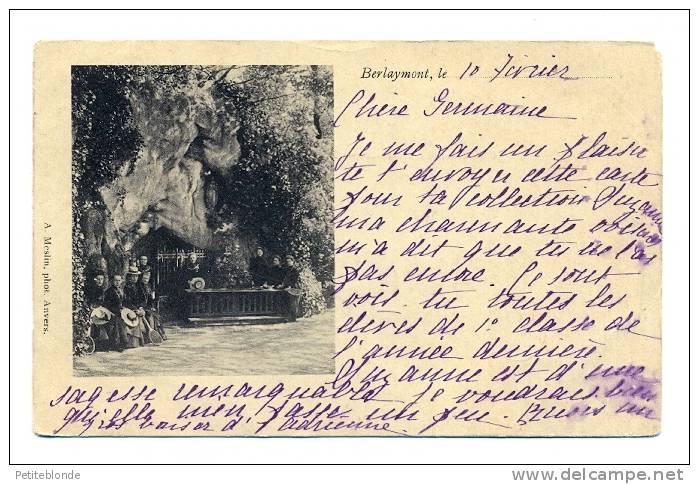 Berlaymont, le 10 Février
Chère Germaine
Je me fais un plaisir
te t'envoyer cette carte
pour ta collection Suzanne
ma charmante
m'a dit que tu ne l'as
pas encore. Ce sont
vois-tu toutes les
élèves de 1e classe de
l'année dernière.
Suzanne est d'une
sagesse remarquable je voudrais bien
qu'elle m'en passe un peu. Reçois un
gros baiser d'Adrienne.
A. Meslin, phot. Anvers.
Petiteblonde
http://www.delcampe.net